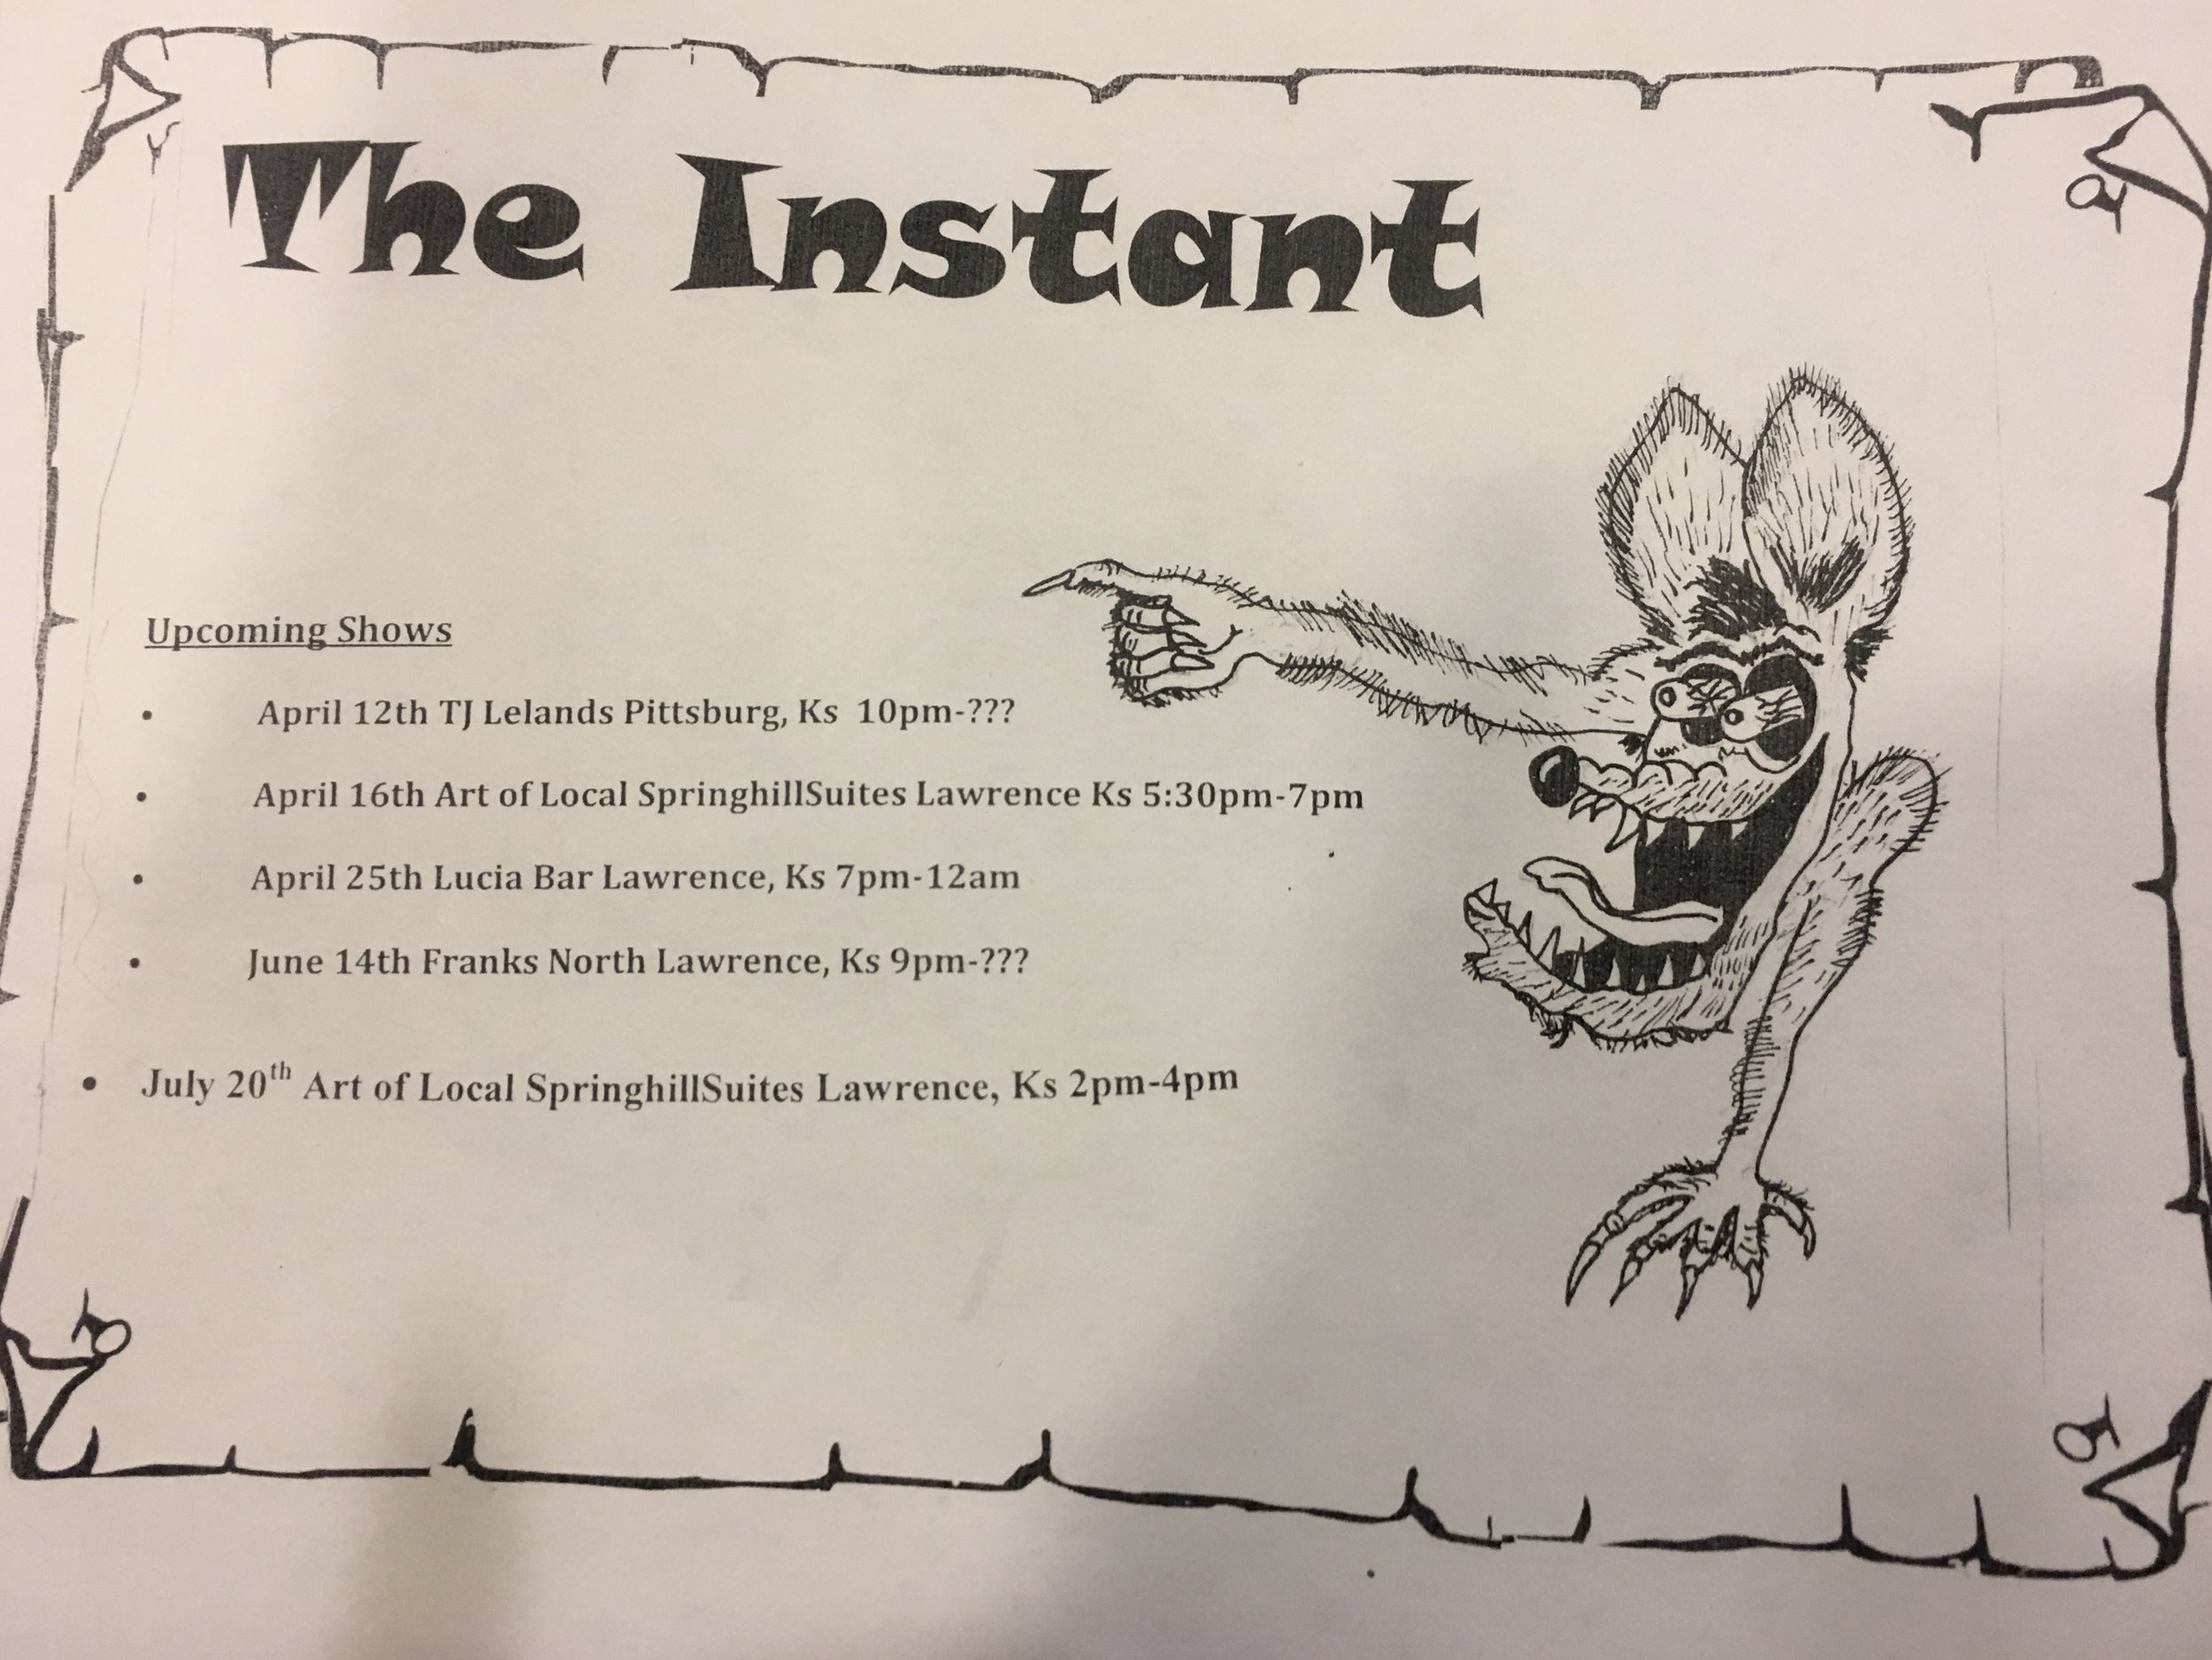 The Instant
Upcoming Shows
• April 12th TJ Lelands Pittsburg, Ks 10pm-???
• April 16th Art of Local SpringhillSuites Lawrence Ks 5:30pm-7pm
• April 25th Lucia Bar Lawrence, Ks 7pm-12am
• June 14th Franks North Lawrence, Ks 9pm-???
• July 20th Art of Local SpringhillSuites Lawrence, Ks 2pm-4pm